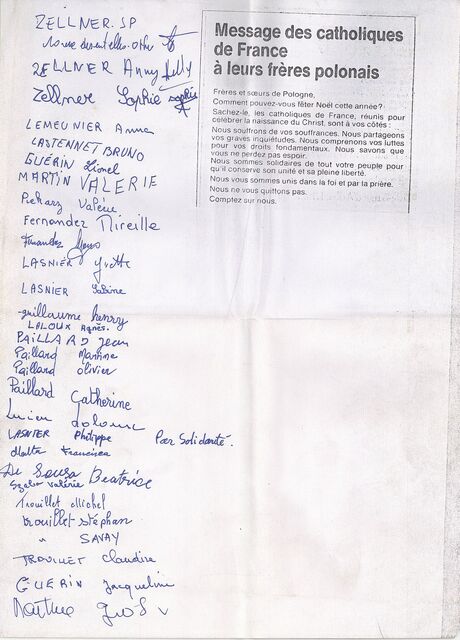 Message des catholiques
de France
à leurs frères polonais
Frères et sœurs de Pologne,
Comment pouvez-vous fêter Noël cette année?
Sachez-le, les catholiques de France, réunis pour
célébrer la naissance du Christ, sont à vos côtés :
Nous souffrons de vos souffrances. Nous partageons
vos graves inquiétudes. Nous comprenons vos luttes
pour vos droits fondamentaux. Nous savons que
vous ne perdez pas espoir.
Nous sommes solidaires de tout votre peuple pour
qu'il conserve son unité et sa pleine liberté.
Nous vous sommes unis dans la foi et par la prière.
Nous ne vous quittons pas.
Comptez sur nous.
ZELLNER. SP
ZELLNER Anny
Zellner Sophie
LEMEUNIER Anne
CASTENNET BRUNO
GUÉRIN Lionel
MARTIN VALERIE
Valérie
Fernandez Mireille
Fernandez
LASNIER Yvette
LASNIER Sabine
guillaume henry
LALOUX Agnès.
PAILLARD Jean
Paillard Martine
Paillard olivier
Paillard Catherine
Lucien
LASNIER Philippe Par Solidarité.
Francisca
De Souza Beatrice
Valérie
Trouillet Michel
trouillet stéphan
" SAVAY
TROUILLET Claudine
GUERIN Jacqueline